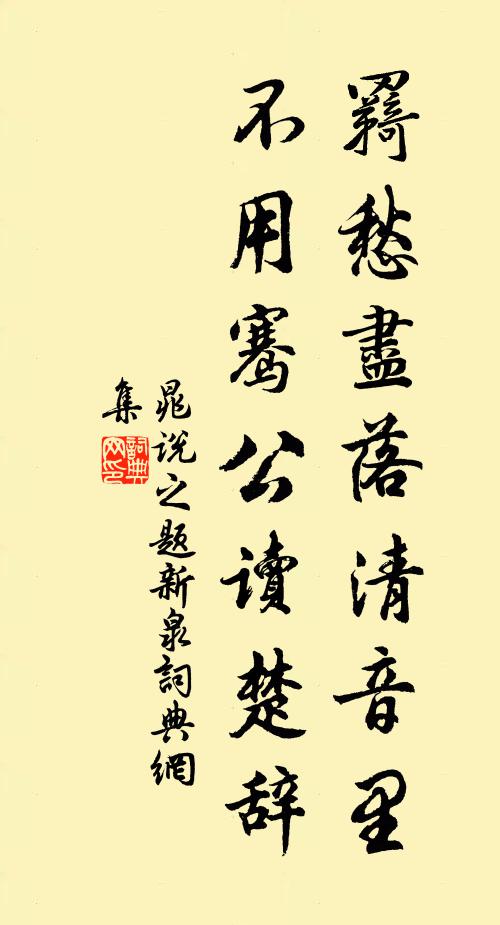 羇愁盡落清音里
不用騫公讀楚辞
晁说之题新泉詞典網
集
詞典网印